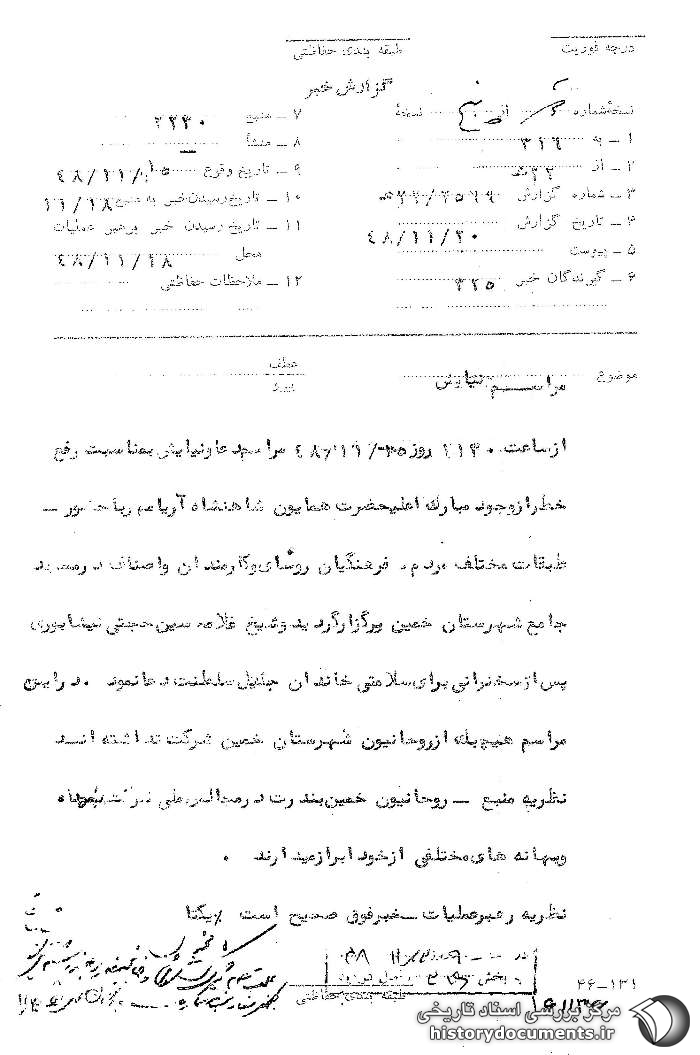 درجه فوریت
طبقه بندی حفاظتی
گزارش خبر
نسخهٔ شماره از نسخهٔ
۱ ـ به ۳۱۶
۲ ـ از
۳ ـ شماره گزارش
۴ ـ تاریخ گزارش ۴۸/۱۱/۲۰
۵ ـ پیوست
۶ ـ گیرندگان خبر ۳۲۵
۷ ـ منبع ۲۲۳۰
۸ ـ منشأ
۹ ـ تاریخ وقوع ۴۸/۱۱/۱۵
۱۰ ـ تاریخ رسیدن خبر به منبع ۱۱/۱۸
۱۱ ـ تاریخ رسیدن خبر برهبر عملیات
محل ۴۸/۱۱/۱۸
۱۲ ـ ملاحظات حفاظتی
عطف
پیرو
موضوع مراسم نیایش
از ساعت ۲۱۳۰ روز ۴۸/۱۱/۱۵ مراسم دعا و نیایش بمناسبت رفع
خطر از وجود مبارک اعلیحضرت همایون شاهنشاه آریامهر با حضور ـ
طبقات مختلف مردم. فرهنگیان روسای و کارمندان و اصناف در مسجد
جامع شهرستان خمین برگزار گردید و شیخ غلامحسین حجتی نیشابوری
پس از سخنرانی برای سلامتی خاندان جلیل سلطنت دعا نمود . در این
مراسم هیچیک از روحانیون شهرستان خمین شرکت نداشته اند
نظریه منبع ـ روحانیون خمین بندرت در مجالس ملی شرکت نموده
و بهانه های مختلفی از خود ابراز میدارند .
نظریه رهبر عملیات ـ خبر فوق صحیح است / یکتا
طبقه بندی حفاظتی
۴۶-۱۳۱
مرکز بررسی اسناد تاریخی
historydocuments.ir